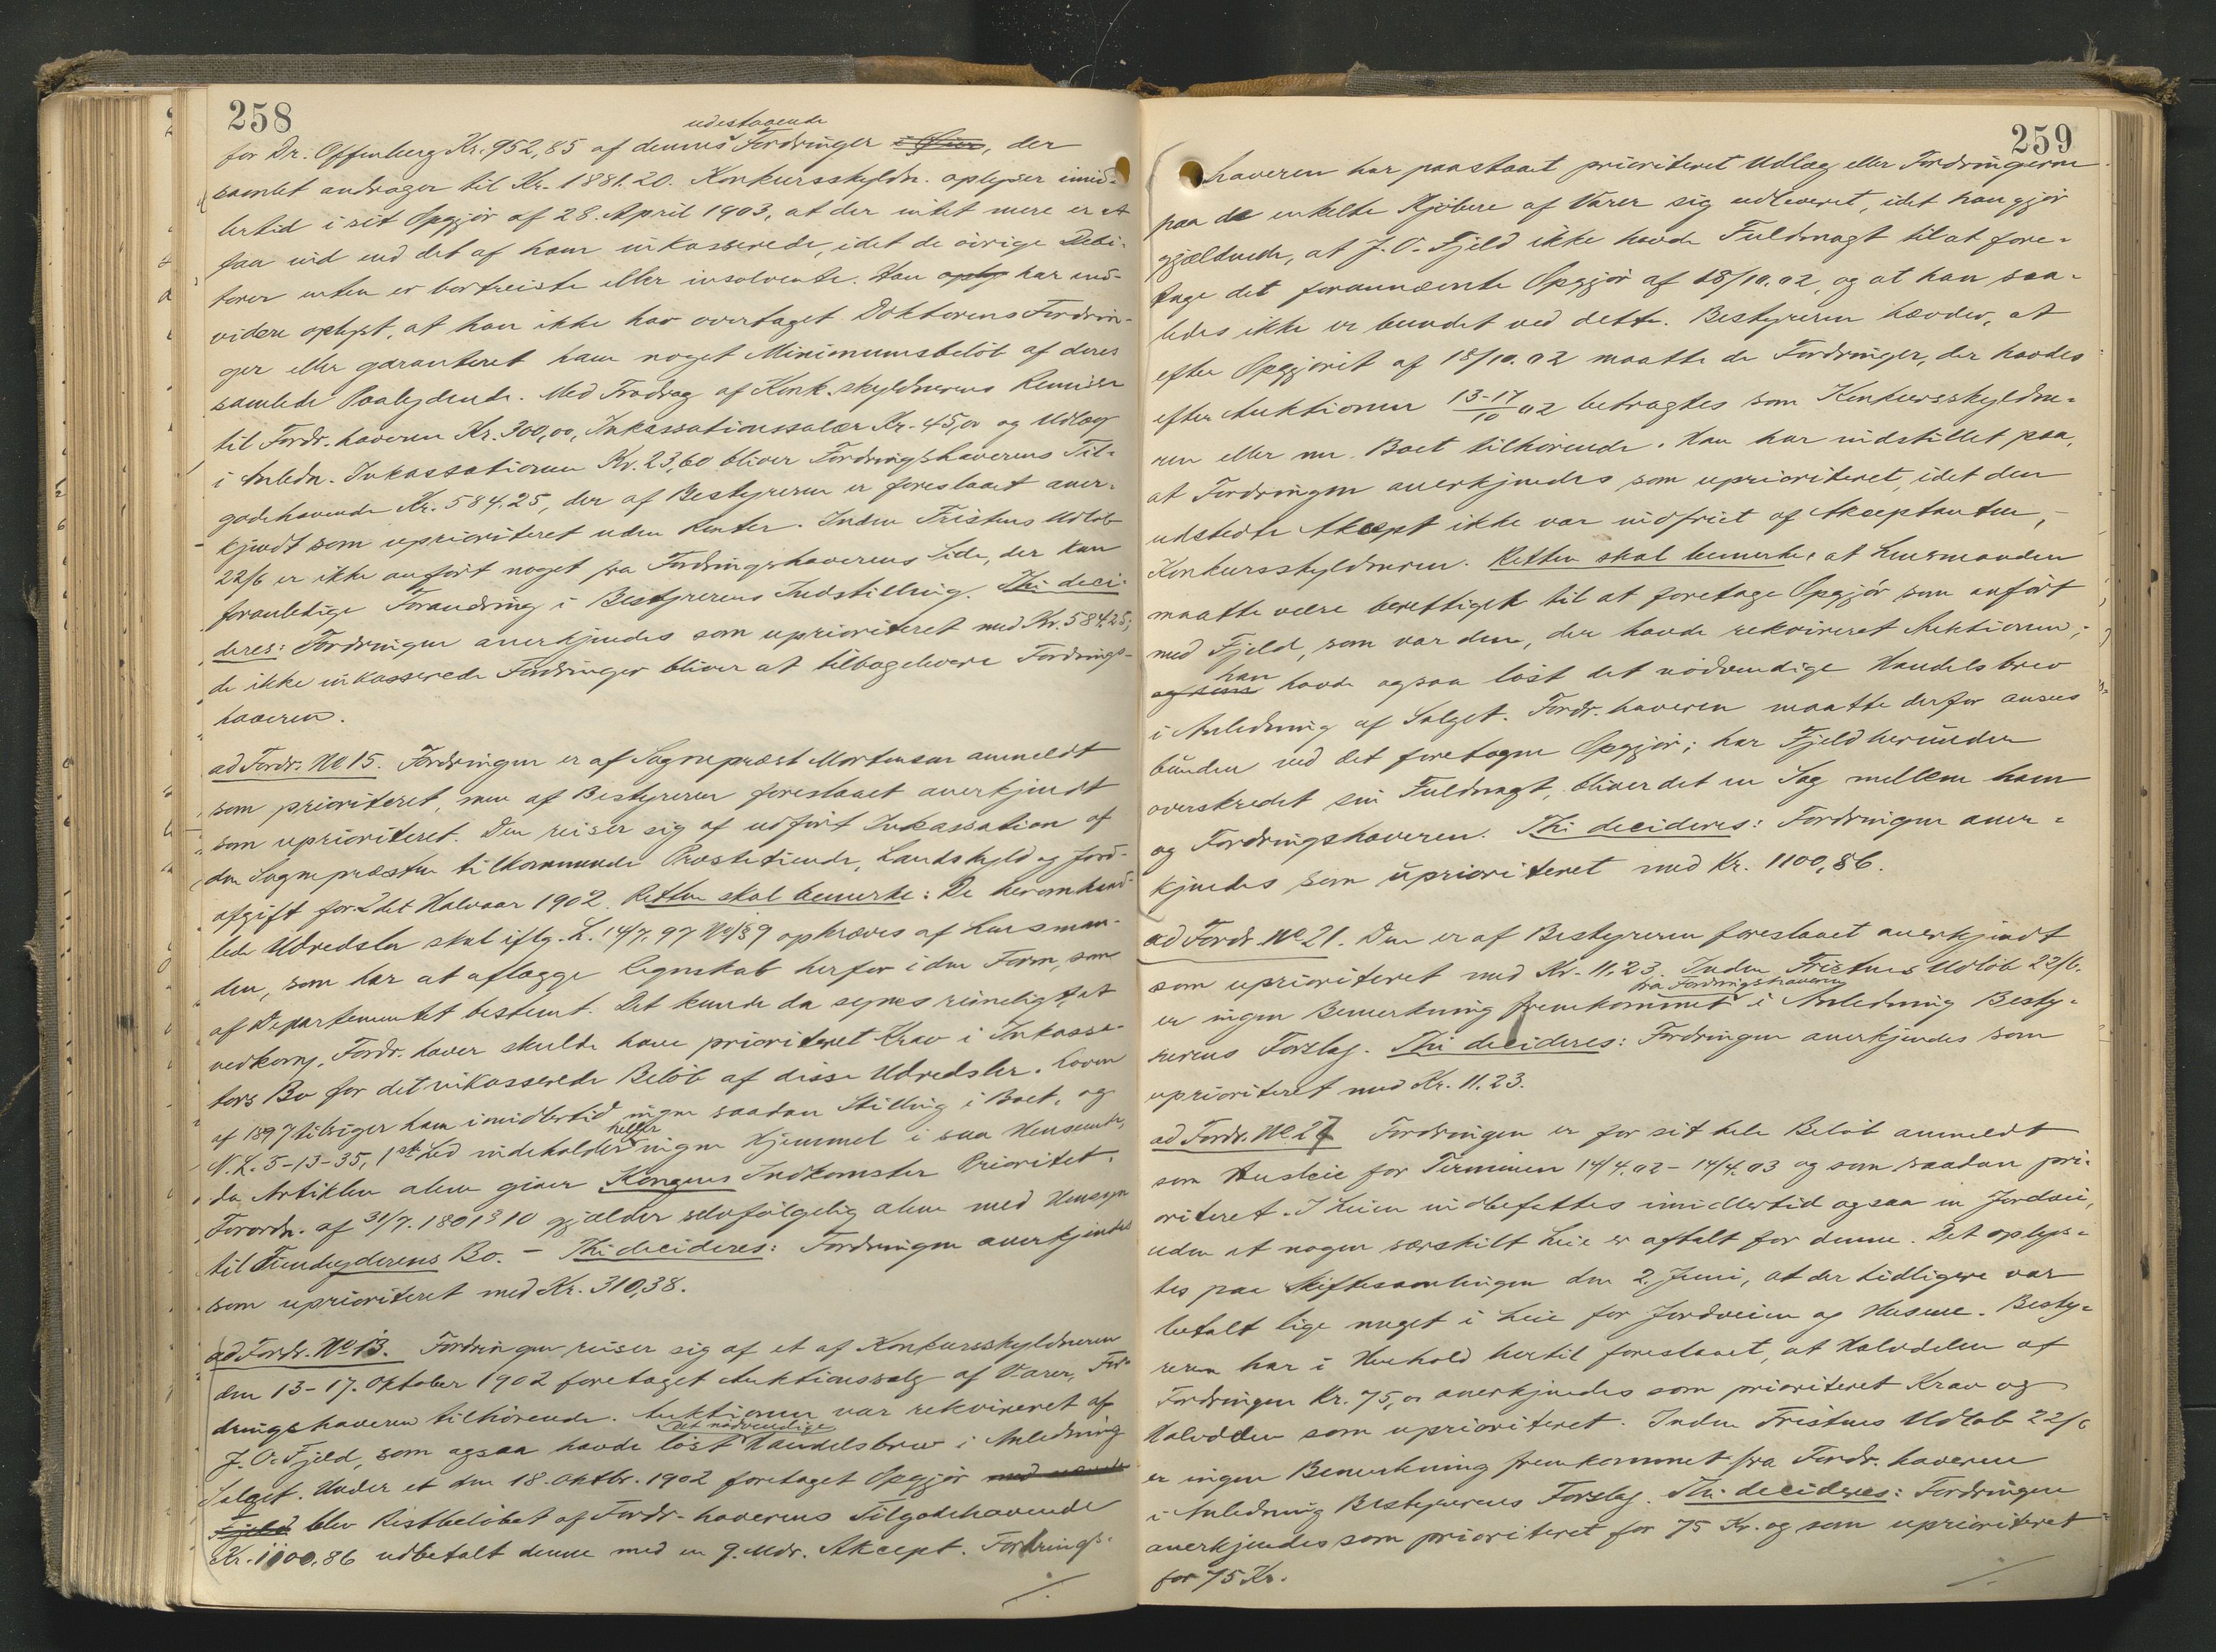 258
udestaaende
for Dr. Offenberg Kr. 952,85 af dennes Fordringer, der
samlet andrager til Kr. 1881.20. Konkursskyldn. oplyser imid-
lertid i sit Opgjör af 28. April 1903, at der intet mere er at
faa ind end det af ham inkasserede, idet de övrige Debi-
torer enten er bortreiste eller insolvente. Han oplys har end-
videre oplyst, at han ikke har overtaget Doktorens Fordrin-
ger eller garanteret ham noget Minimumsbelöb af deres
samlede Paalydende. Med Fradrag af Konk.skyldnerens Remisse
til Fordr.haveren Kr. 300,00, Inkassationssalær Kr. 45,00 og Udlæg
i Anledn. Inkassationen Kr. 23,60 bliver Fordringshaverens Til-
godehavende Kr. 584.25, der af Bestyreren er foreslaaet aner-
kjendt som uprioriteret uden Renter. Inden Fristens Udlöb
22/6 er ikke anfört noget fra Fordringshaverens Side, der kan
foranledige Forandring i Bestyrerens Indstilling. Thi deci-
deres: Fordringen anerkjendes som uprioriteret med Kr. 584.25;
de ikke inkasserede Fordringer bliver at tilbagelevere Fordrings-
haveren.
ad Fordr. No 15. Fordringen er af Sogneprest Mortensen anmeldt
som prioriteret, men af Bestyreren foreslaaet anerkjendt
som uprioriteret. Den reiser sig af udfört Inkassation af
den Sognepræsten tilkommende Præstetiende, Landskyld og Jord-
afgift for 2det Halvaar 1902. Retten skal bemerke: De heromhand-
lede Udredsler skal iflg. L. 14/7.97 No 1 § 9 opkræves af Lensman-
den, som har at aflægge Regnskab herfor i den Form, som
af Departementet bestemt. Det kunde da synes rimeligt, at
vedkom. Fordr.haver skulde have prioriteret Krav i Inkassa-
tors Bo for det inkasserede Belöb af disse Udredsler. Loven
af 1897 tilsiger ham imidlertid ingen saadan Stilling i Boet, og
heller
N.L. 5-13-35, 1ste Led indeholder ingen Hjemmel i saa Henseende,
da Artiklen alene giver Kongens Indkomster Prioritet.
Forordn. af 31/7. 1801 § 10 gjælder selvfölgelig alene med Hensyn
til Tiendeyderens Bo. - Thi decideres: Fordringen anerkjendes
som uprioriteret med Kr. 310,38.
ad Fordr. No 13. Fordringen reiser sig af et af Konkursskyldneren
den 13-17. Oktober 1902 foretaget Auktionssalg af Varer, For-
dringshaveren tilhörende. Auktionen var rekvireret af
det nödvendige
J. O. Fjeld, som ogsaa havde löst Handelsbrev i Anledning
Salget. Under et den 18. Oktbr. 1902 foretaget Opgjör med
Fjeld blev Restbelöbet af Fordr.haverens Tilgodehavende
Kr. 1100,86 udbetalt denne med en 9. Mdr. Akcept. Fordrings-
./.
259
haveren har paastaaet prioriteret Udlæg eller Fordringerne
paa de enkelte Kjöbere af Varer sig udleveret, idet han gjör
gjældende, at J. O. Fjeld ikke havde Fuldmagt til at fore-
tage det forannævnte Opgjör af 18/10.02, og at han saa-
ledes ikke er bundet ved dette. Bestyreren hævder, at
efter Opgjöret af 18/10.02 maatte de Fordringer, der havdes
efter Auktionen 13-17/10 02 betragtes som Konkursskyldne-
ren eller nu Boet tilhörende. Han har indstillet paa,
at Fordringen anerkjendes som uprioriteret, idet den
udstedte Akcept ikke var indfriet af Akceptanten, -
Konkursskyldneren. Retten skal bemerke, at Lensmanden
maatte være berettiget til at foretage Opgjör som anfört
med Fjeld, som var den, der havde rekvireret Auktionen;
han
havde ogsaa löst det nödvendige Handelsbrev
i Anledning af Salget. Fordr.haveren maatte derfor anses
bunden ved det foretagne Opgjör; har Fjeld herunder
overskredet sin Fuldmagt, bliver det en Sag mellem ham
og Fordringshaveren. Thi decideres: Fordringen aner-
kjendes som uprioriteret med Kr. 1100,86.
ad Fordr. No 21. Den er af Bestyreren foreslaaet anerkjendt
som uprioriteret med Kr. 11.23. Inden Fristens Udlöb 22/6.
fra Fordringshaveren
er ingen Bemerkning fremkommet i Anledning Besty-
rerens Forslag. Thi decideres: Fordringen anerkjendes som
uprioriteret med Kr. 11.23.
ad Fordr. No 27 Fordringen er for sit hele Belöb anmeldt
som Husleie for Terminen 14/4.02 - 14/4.03 og som saadan pri-
oriteret. I Leien indbefattes imidlertid ogsaa en Jordvei,
uden at nogen særskilt Leie er aftalt for denne. Det oplys-
tes paa Skiftesamlingen den 2. Juni, at der tidligere var
betalt lige meget i Leie for Jordveien og Husene. Besty-
reren har i Henhold hertil foreslaaet, at Halvdelen af
Fordringen Kr. 75,00 anerkjendes som prioriteret Krav og
Halvdelen som uprioriteret. Inden Fristens Udlöb 22/6
er ingen Bemerkning fremkommet fra Fordr.haveren
i Anledning Bestyrerens Forslag. Thi decideres: Fordringen
anerkjendes som prioriteret for 75 Kr. og som uprioriteret
for 75 Kr.
./.